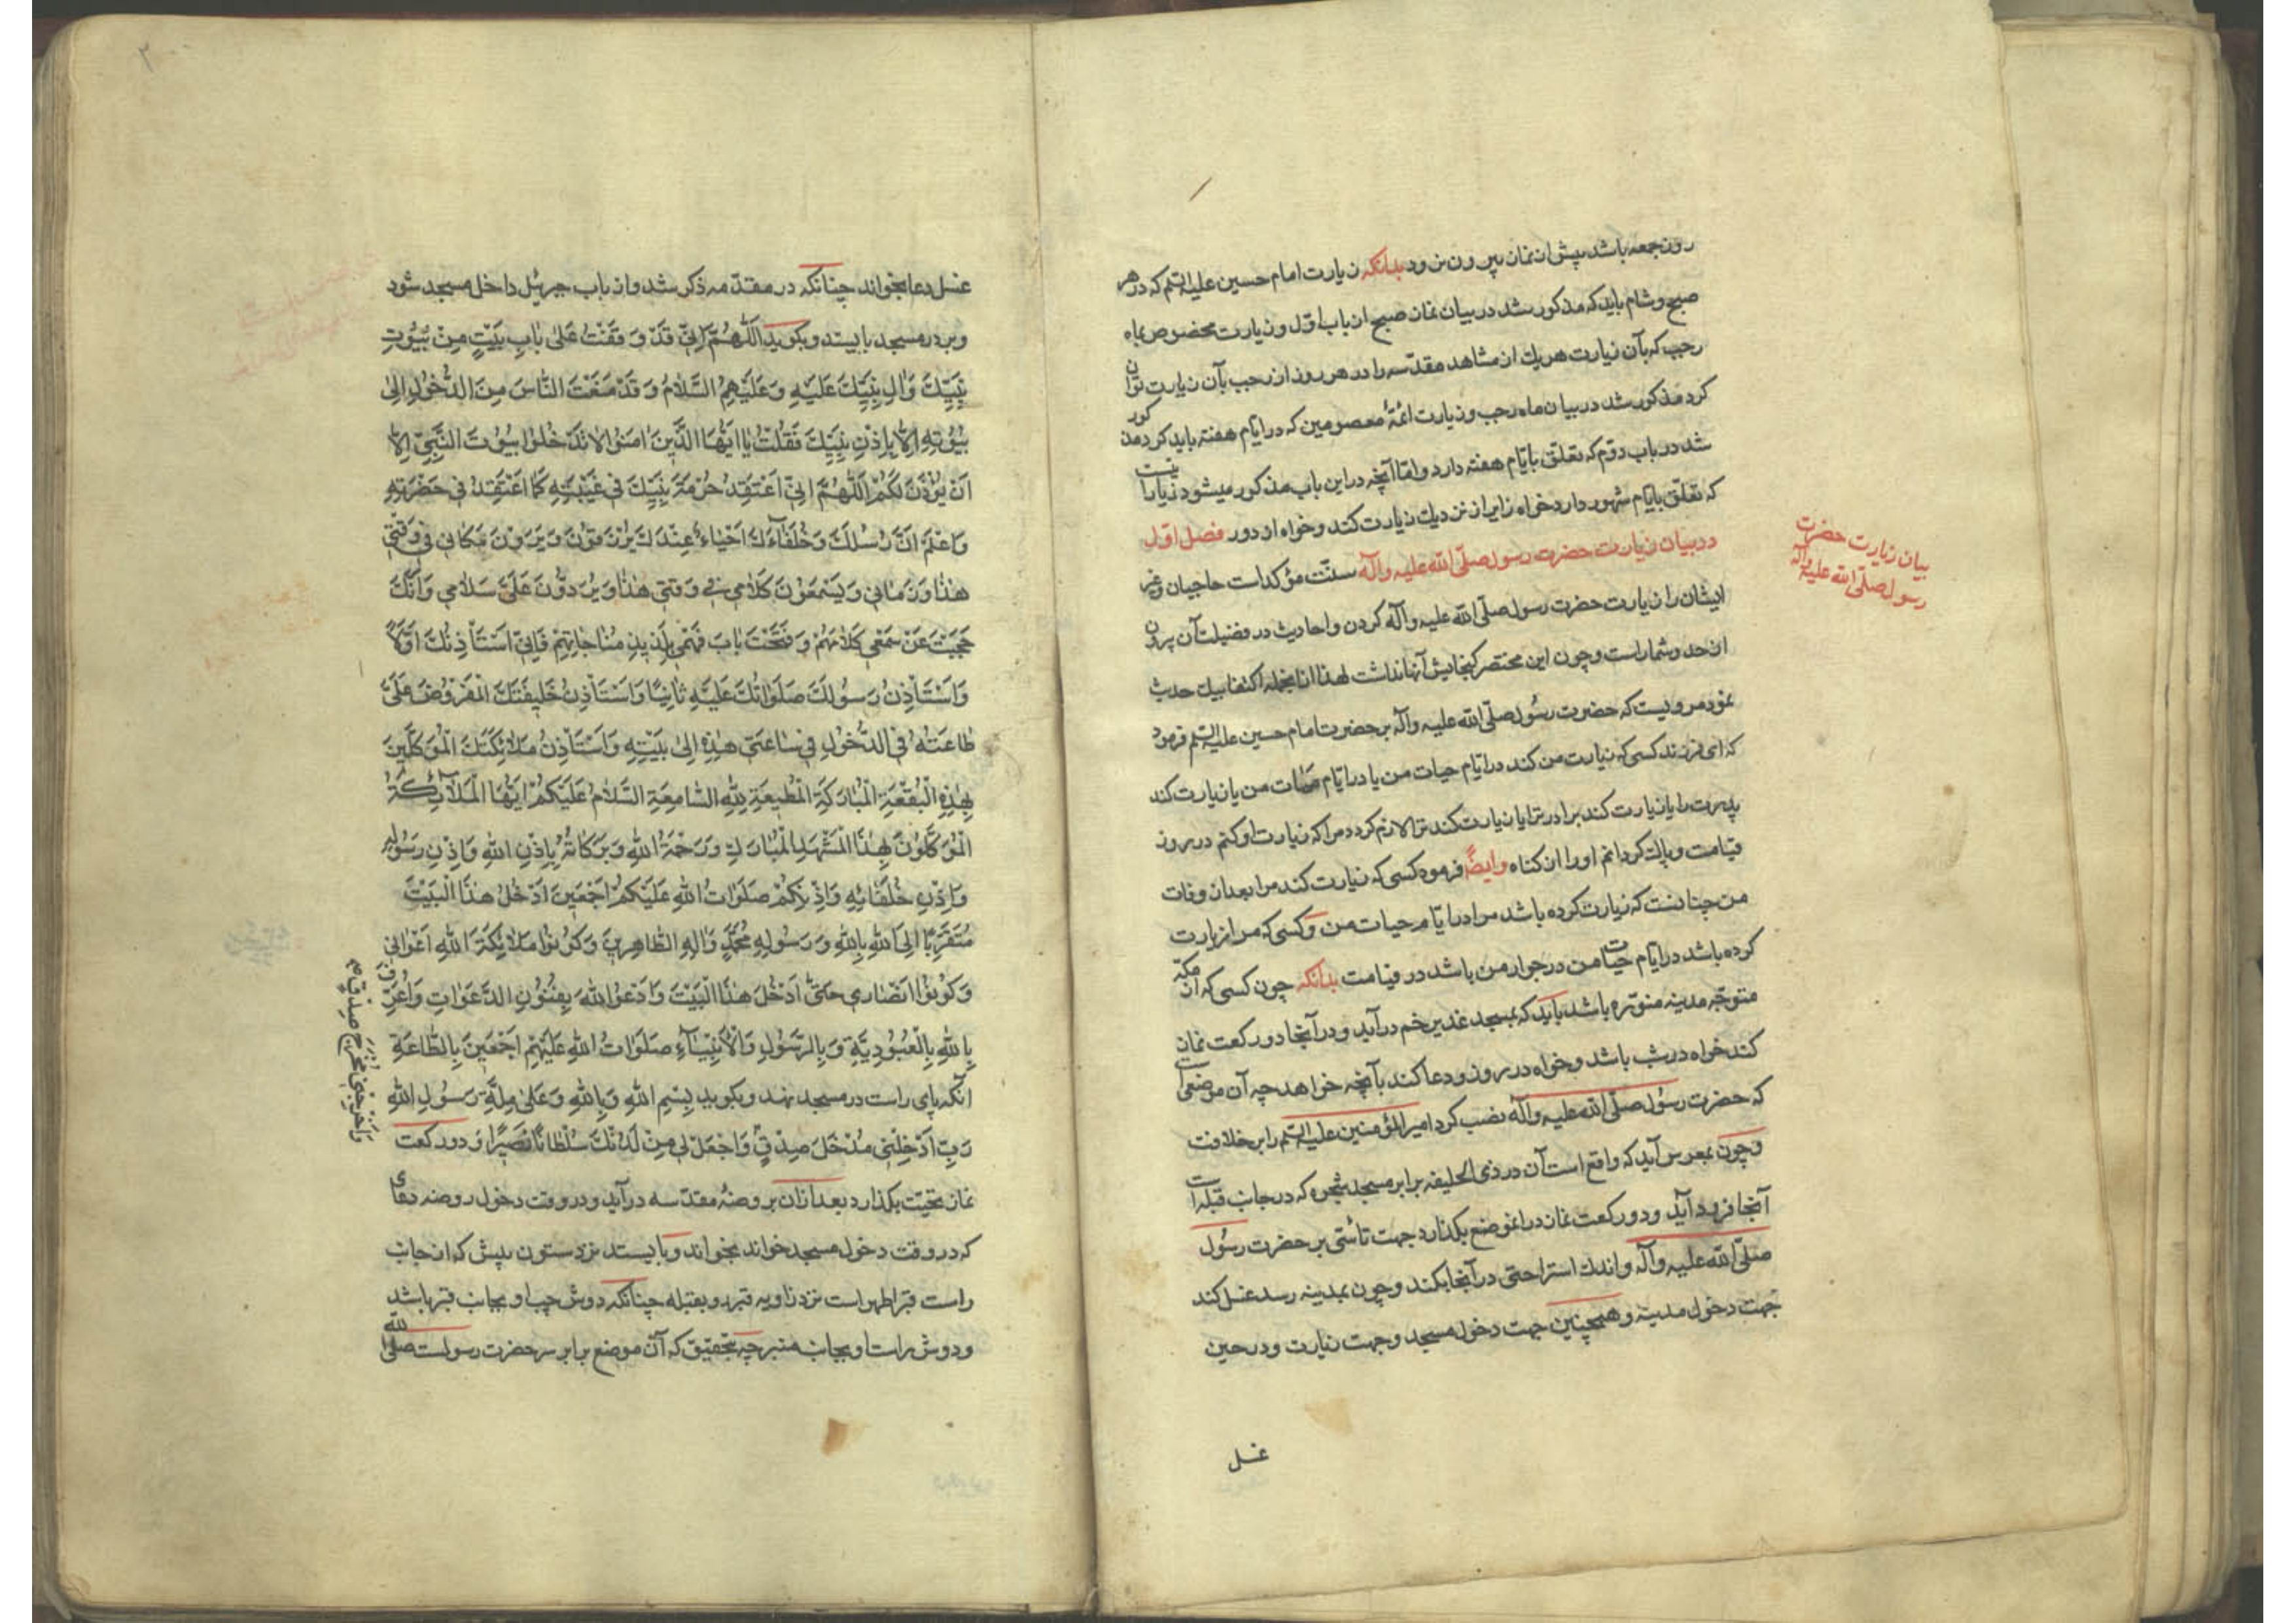 روز جمعه باشد پیش از نماز بیرون نرود بدانکه زیارت امام حسین علیه السّلم که در هر
صبح و شام باید که مذکور شد در بیان نماز صبح از باب اوّل و زیارت مخصوص بماه
رجب که بآن زیارت هریك از مشاهد مقدّسه را در هر روز از رجب بآن زیارت توان
کرد مذکور شد در بیان ماه رجب و زیارت ائمّهٔ معصومین که در ایّام هفته باید کرد مذکور
شد در باب دوّم که تعلّق بایّام هفته دارد و امّا آنچه در این باب مذکور میشود زیارا
که تعلّق بایّام شهور دارد خواه زایر از نزدیك زیارت کند و خواه از دور فصل اوّل
در بیان زیارت حضرت رسول صلّی الله علیه وآله سنّت مؤکد است حاجیان و غیر
ایشان را زیارت حضرت رسول صلّی الله علیه وآله کردن و احادیث در فضیلت آن بیرون
از حد و شمار است و چون این مختصر گنجایش آنها نداشت لهذا از انجمله اکتفا بیك حدیث
نمود مرویست که حضرت رسُول صلّی الله علیه وآله بر حضرت امام حسین علیه السّلم فرمود
که ای فرزند کسی که زیارت من کند در ایّام حیات من یا در ایّام ممات من یا زیارت کند
پدرت را یا زیارت کند برادر ترا یا زیارت کند ترا لازم گردد مرا که زیارت او کنم در روز
قیامت و پاك گردانم او را از گناه وایضًا فرموده کسی که زیارت کند مرا بعد از وفات
من چنانست که زیارت کرده باشد مرا در ایّام حیات من و کسی که مرا زیارت
کرده باشد در ایام حیات من در جوار من باشد در قیامت بدانکه چون کسی که از مکّه
متوجّه مدینه منوّره باشد باید که بمسجد غدیر خم در آید و در آنجا دو رکعت نماز
کند خواه در شب باشد و خواه در روز و دعا کند بآنچه خواهد چه آن موضعی است
که حضرت رسُول صلّی الله علیه وآله نصب کرد امیر المؤمنین علیه السّلم را بر خلافت
و چون بمعرس آید که واقع است آن در ذی الحلیفه برابر مسجد شجره که در جانب قبله است
آنجا فرود آید و دو رکعت نماز در انموضع بگذارد جهت تأسّی بر حضرت رسُول
صلّی الله علیه وآله و اندك استراحتی در آنجا بکند و چون بمدینه رسد غسل کند
جهت دخول مدینه و همچنین جهت دخول مسجد و جهت زیارت و در حین
غسل
بیان زیارت حضرت
رسول صلّی الله علیه وآله
غسل دعا بخواند چنانکه در مقدّمه ذکر شد و از باب جبرئیل داخل مسجد شود
و بر در مسجد بایستد و بگوید اَللّهُمَّ اِنّی قَدْ وَقَفْتُ عَلی بابِ بَیْتٍ مِنْ بُیُوتِ
نَبِیِّكَ وَالِ نَبِیِّكَ عَلَیْهِ وَعَلَیْهِمُ السَّلامُ وَقَدْ مَنَعْتَ النّاسَ مِنَ الدُّخُولِ اِلی
بُیُوتِهِ اِلّا بِاِذْنِ نَبِیِّكَ فَقُلْتَ یا اَیُّهَا الَّذینَ امَنُوا لا تَدْخُلُوا بُیُوتَ النَّبِیِّ اِلّا
اَنْ یُؤْذَنَ لَکُمْ اَللّهُمَّ اِنّی اَعْتَقِدُ حُرْمَةَ نَبِیِّكَ فی غَیْبَتِهِ کَما اَعْتَقِدُ فی حَضْرَتِهِ
وَاَعْلَمُ اَنَّ رُسُلَكَ وَخُلَفآءَكَ اَحْیاءٌ عِنْدَكَ یُرْزَقُونَ وَیَرَوْنَ مَکانی فی وَقْتی
هذا وَزَمانی وَیَسْمَعُونَ کَلامی فی وَقْتی هذا وَیَرُدّوُنَ عَلَیَّ سَلامی وَاَنَّكَ
حَجَبْتَ عَنْ سَمْعی کَلامَهُمْ وَفَتَحْتَ بابَ فَهْمی بِلَذیذِ مُناجاتِهِمْ فَاِنّی اَسْتَأْذِنُكَ اَوَّلًا
وَاَسْتَأْذِنُ رَسُولَكَ صَلَواتُكَ عَلَیْهِ ثانِیًا وَاَسْتَأْذِنُ خَلیفَتَكَ الْمَفْرُوضَ عَلَیَّ
طاعَتُهُ فی الدُّخُولِ فی ساعَتی هذِهِ اِلی بَیْتِهِ وَاَسْتَأْذِنُ مَلائِکَتَكَ الْمُوَکَّلینَ
بِهذِهِ الْبُقْعَةِ الْمُبارَکَةِ الْمُطیعَةِ لِلّهِ السّامِعَةِ السَّلامُ عَلَیْکُمْ اَیُّهَا الْمَلآئِکَةُ
الْمُوَکَّلُونَ بِهذَا الْمَشْهَدِ الْمُبارَكِ وَرَحْمَةُ اللهِ وَبَرَکاتُهُ بِاِذْنِ اللهِ وَاِذْنِ رَسُولِهِ
وَاِذْنِ خُلَفائِهِ وَاِذْنِکُمْ صَلَواتُ اللهِ عَلَیْکُمْ اَجْمَعینَ اَدْخُلُ هذَا الْبَیْتَ
مُتَقَرِّبًا اِلَی اللهِ بِاللهِ وَرَسُولِهِ مُحَمَّدٍ وَالِهِ الطّاهِرینَ وَکُونُوا مَلائِکَةَ اللهِ اَعْوانی
وَکُونُوا اَنْصاری حَتّی اَدْخُلَ هذَا الْبَیْتَ وَاَدْعُوَ اللهَ بِفُنُونِ الدَّعَواتِ وَاَعْتَرِفَ
بِاللهِ بِالْعُبُودِیَّةِ وَبِالرَّسُولِ وَالْاَنْبِیآءِ صَلَواتُ اللهِ عَلَیْهِمْ اَجْمَعینَ بِالطّاعَةِ
آنگه پای راست در مسجد نهد و بگوید بِسْمِ اللهِ وَبِاللهِ وَعَلی مِلَّةِ رَسُولِ اللهِ
رَبِّ اَدْخِلْنی مُدْخَلَ صِدْقٍ وَاجْعَلْ لی مِنْ لَدُنْكَ سُلْطانًا نَصیرًا و دو رکعت
نماز تحیّت بگذارد بعد ازان بروضهٔ مقدّسه در آید و در وقت دخول روضه دعای
که در وقت دخول مسجد خواند بخواند و بایستد نزد ستون پیش که از جانب
راست قبر اطهر است نزد زاویه قبر رو بقبله چنانکه دوش چپ او بجانب قبر باشد
و دوش راست او بجانب منبر چه بتحقیق که آن موضع برابر سر حضرت رسولست صلّی الله
وَاَخْرِجْنی مُخْرَجَ صِدْقٍ